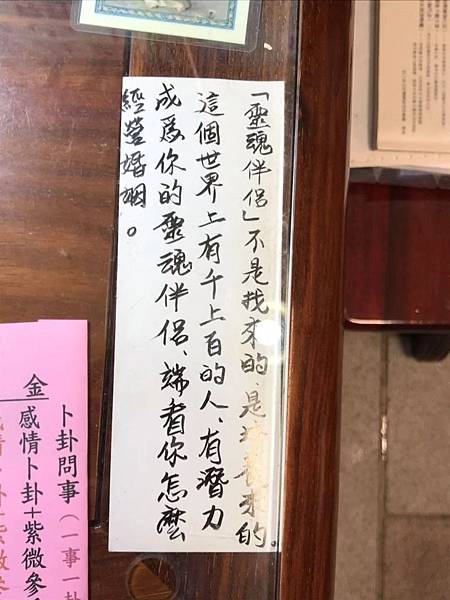 「靈魂伴侶」不是找來的、是培養來的。
這個世界上有千上百的人、有潛力
成爲你的靈魂伴侶、端看你怎麼
經營婚姻。
卜卦問事(一事一卦
金
感情卜卦+紫微參